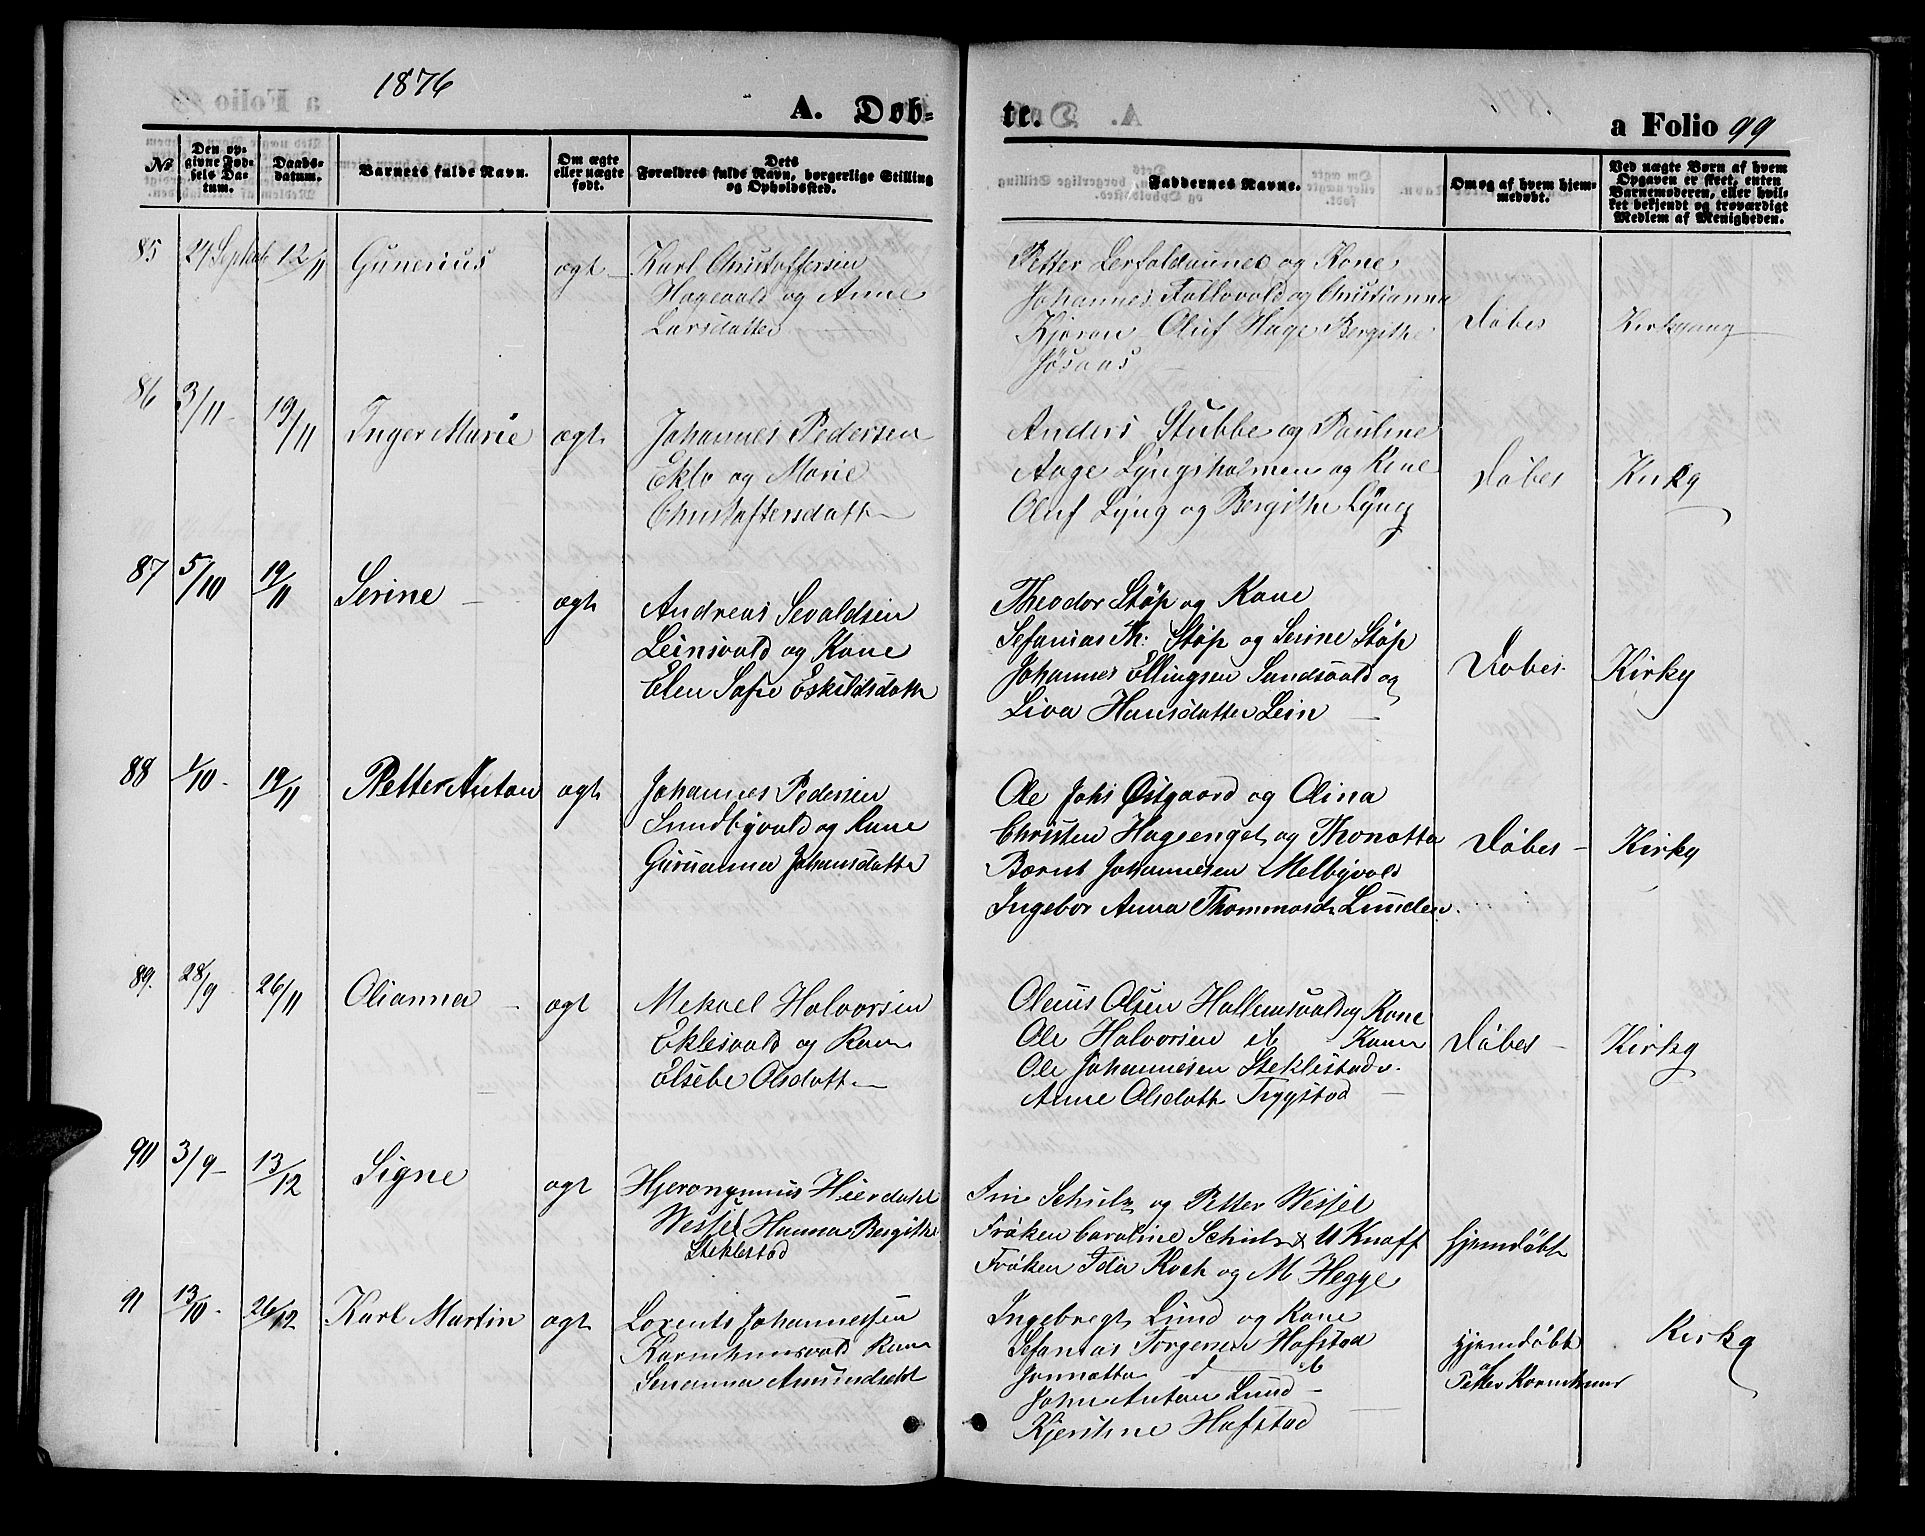 1876
A. Døb=
te.
a Folio 99
No
Den op-
givne Fød-
sels Da-
tum.
Daabs-
datum.
Barnets fulde Navn.
Om ægte
eller uægte
født.
Dets
Forældres fulde Navn, borgerlige Stilling
og Opholdssted.
Faddernes Navne.
Om og af hvem hjem-
medøbt.
Ved uægte Børn af hvem
Opgaven er skeet, enten
Barnemoderen, eller hvil-
ket bekjendt og troværdigt
Medlem af Menigheden.
85 24 Septbr 12/11 Gunerius ægt
Karl Christoffersen
Hagevald og Anne
Larsdatter
Petter Lerfaldaunet og Kone
Johannes og Christianna
Oluf Hage Bergithe
Jøsaas
Døbes
Kirkgang
86 3/11 19/11 Inger Marie ægt
Johannes Pedersen
Eklo og Marie
Christoffersdatt
Anders Stubbe og Pauline
Aage Lyngsholmen og Kone
Oluf Lyng og Bergithe Lyng
Døbes
Kirkg
87 5/10 19/11 Serine ægt
Andreas Sevaldsen
Leinsvald og Kone
Elen Sofie Eskildsdatt
Theodor Støp og Kone
Sefanias Th: Støp og Serine Støp
Johannes Ellingsen Sundsvald og
Liva Hansdatter Lein
Døbes
Kirkg
88 1/10 19/11 Petter Anton ægt
Johannes Pedersen
Sundbyvald og Kone
Guruanna Johansdatt
Ole Johs Østgaard og Olina
Christen Hagsenget og Thonætta
Bærnt Johannesen Melbyvald
Ingebor Anna Thommasd Lunden
Døbes
Kirkg
89. 28/9 26/11 Olianna ægt
Mekael Halvorsen
Eklesvald og Kone
Elsebe Olsdatt
Olaus Olsen Hallemsvald og Kone
Ole Halvorsen Kone
Ole Johannesen Steklestad
Anne Olsdatt Tryystad
Døbes
Kirkg
90 3/9 13/12 Signe ægt
Hjeronymus Heierdahl
Wessel Hanna Bergithe
Steklestad
Schulz og Petter Wessel
Frøken Caroline Schulz & U Knoff
Frøken Ida Koch og M Hegge
hjemdøbt
91 13/10 26/12 Karl Martin ægt
Lorents Johannessen
Karmhusvald Kone
Amundsdt
Ingebregt Lund og Kone
Sefanias Torgersen Hafstad
Jonnætta d
John Anton Lund
Kjerstine Hafstad
hjemdøbt
af
Petter
Kirkg